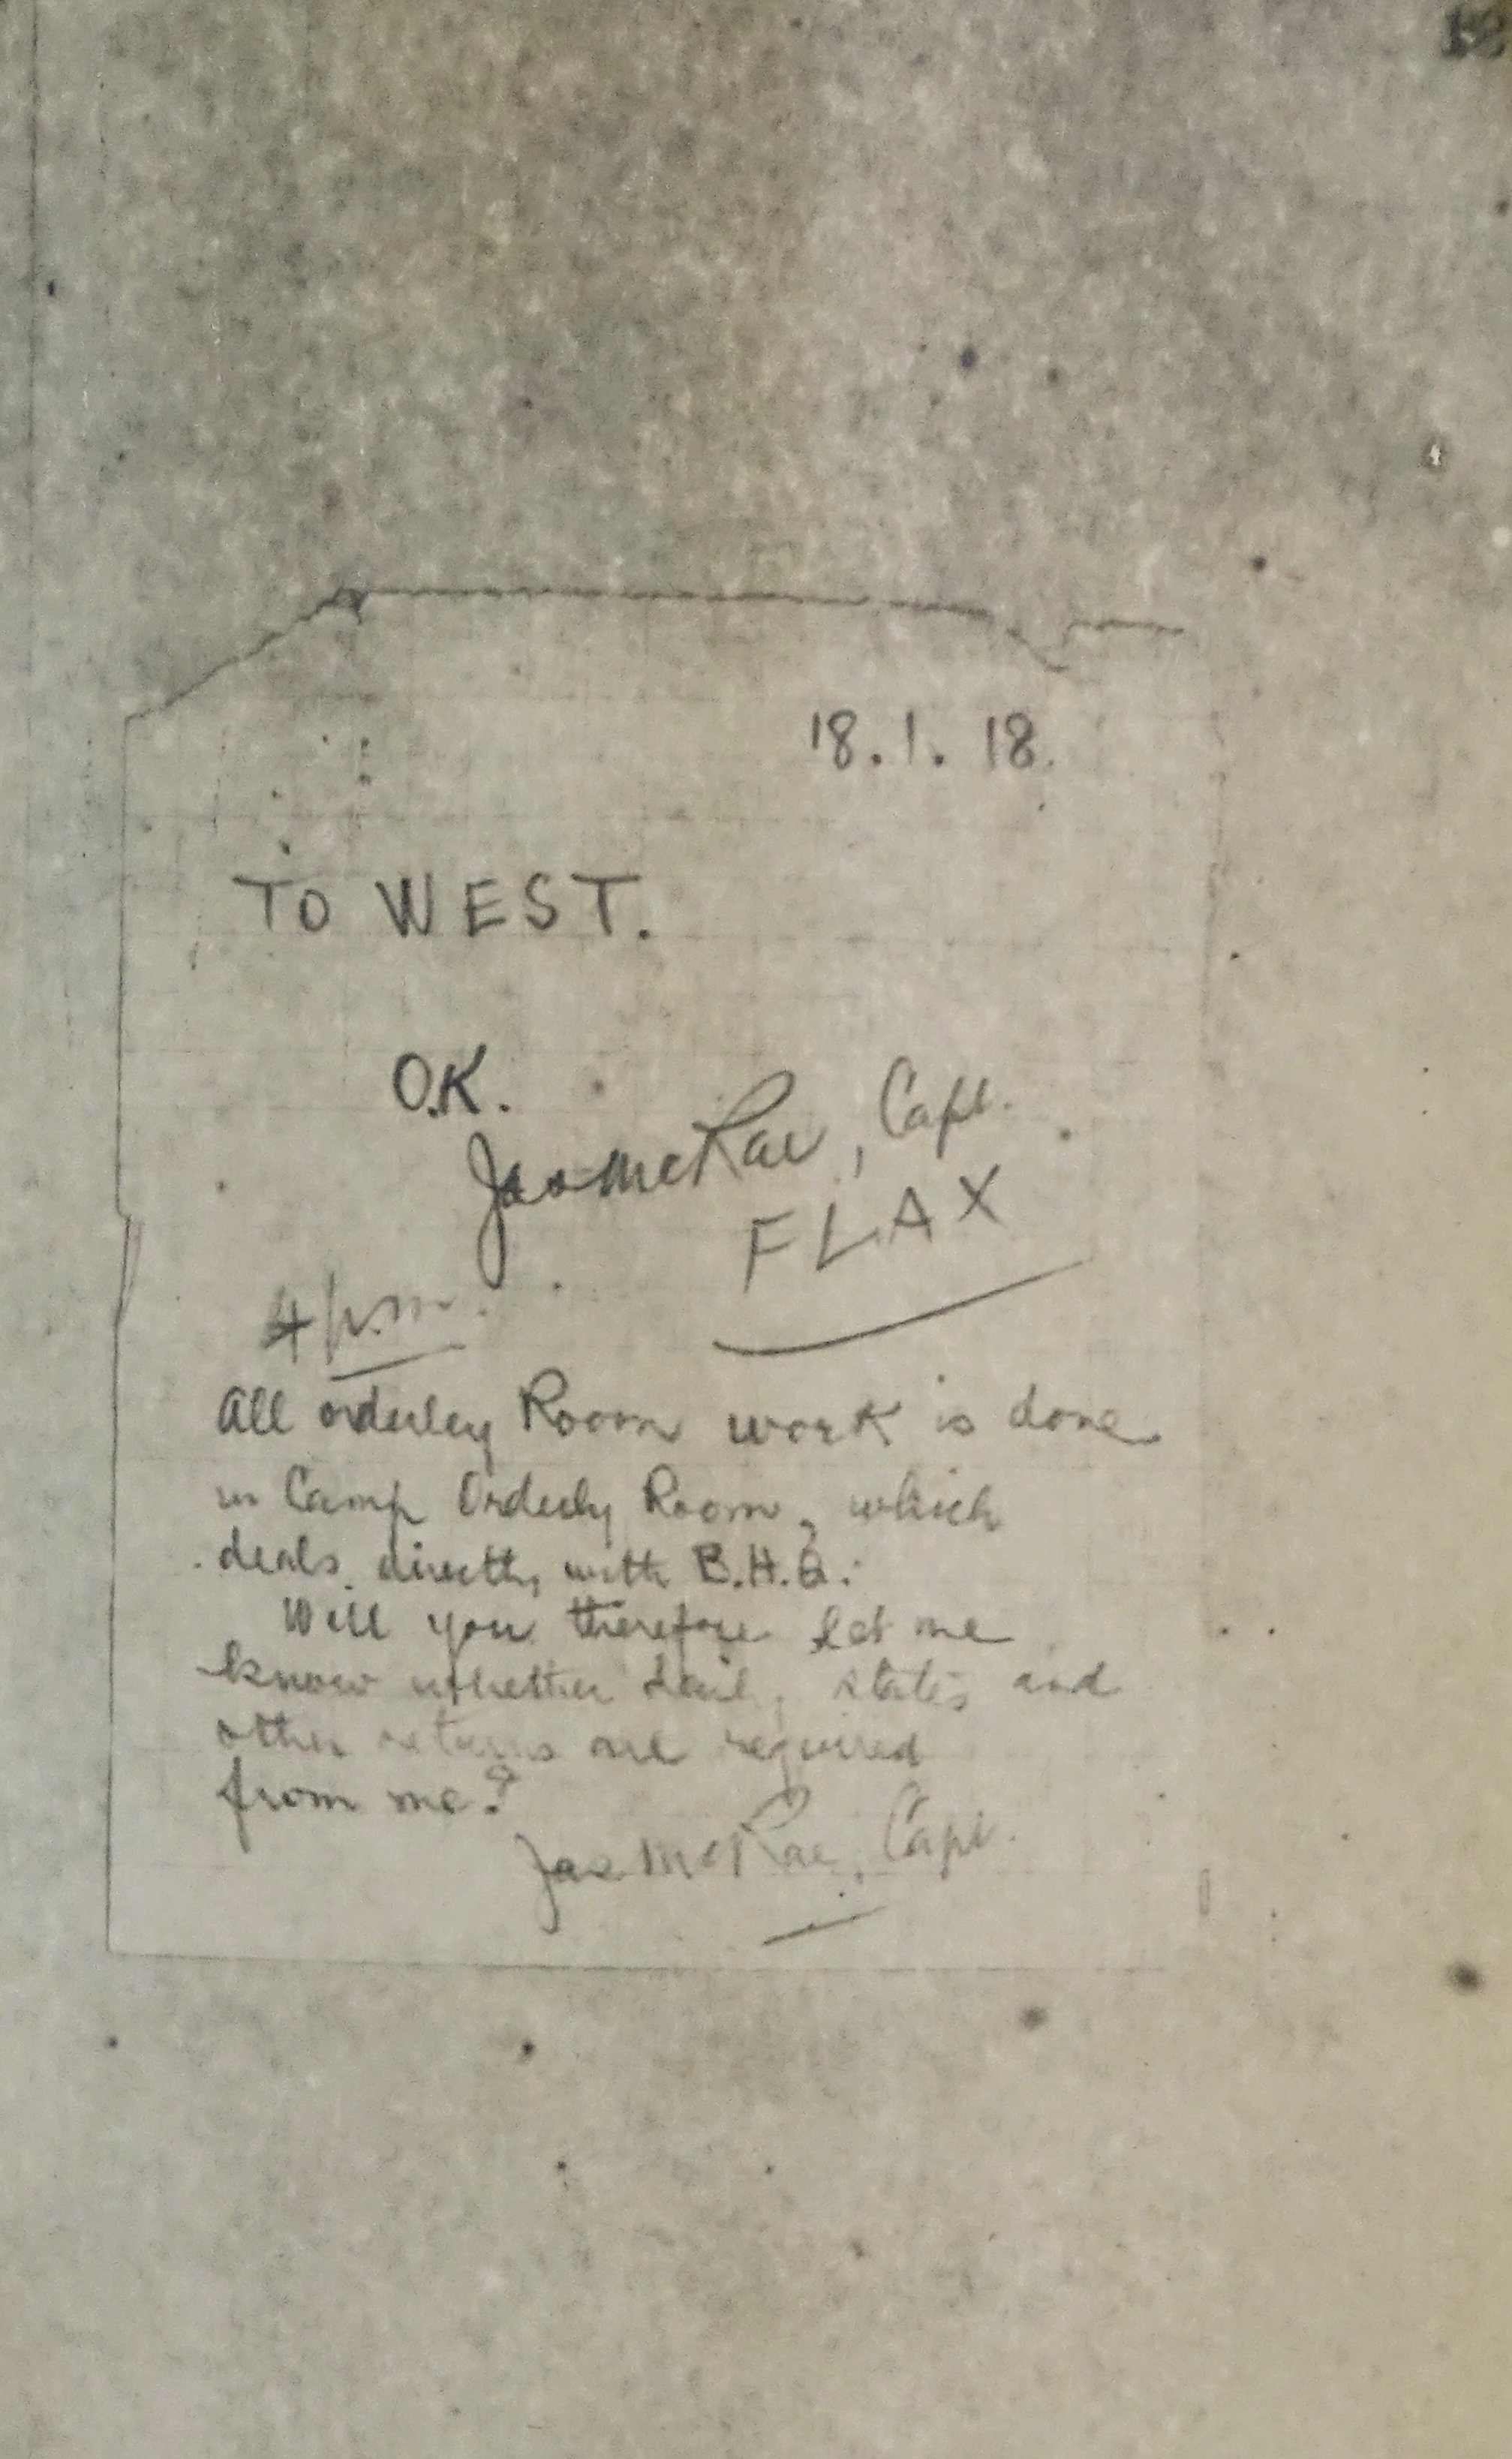 18.1.18.
TO WEST.
O.K.
Jas McRae, Capt.
FLAX
4 p.m.
All orderley Room work is done
in Camp Orderly Room, which
deals directly with B.H.Q.
Will you therefore let me
know whether daily states and
other returns are required
from me?
Jas McRae, Capt.